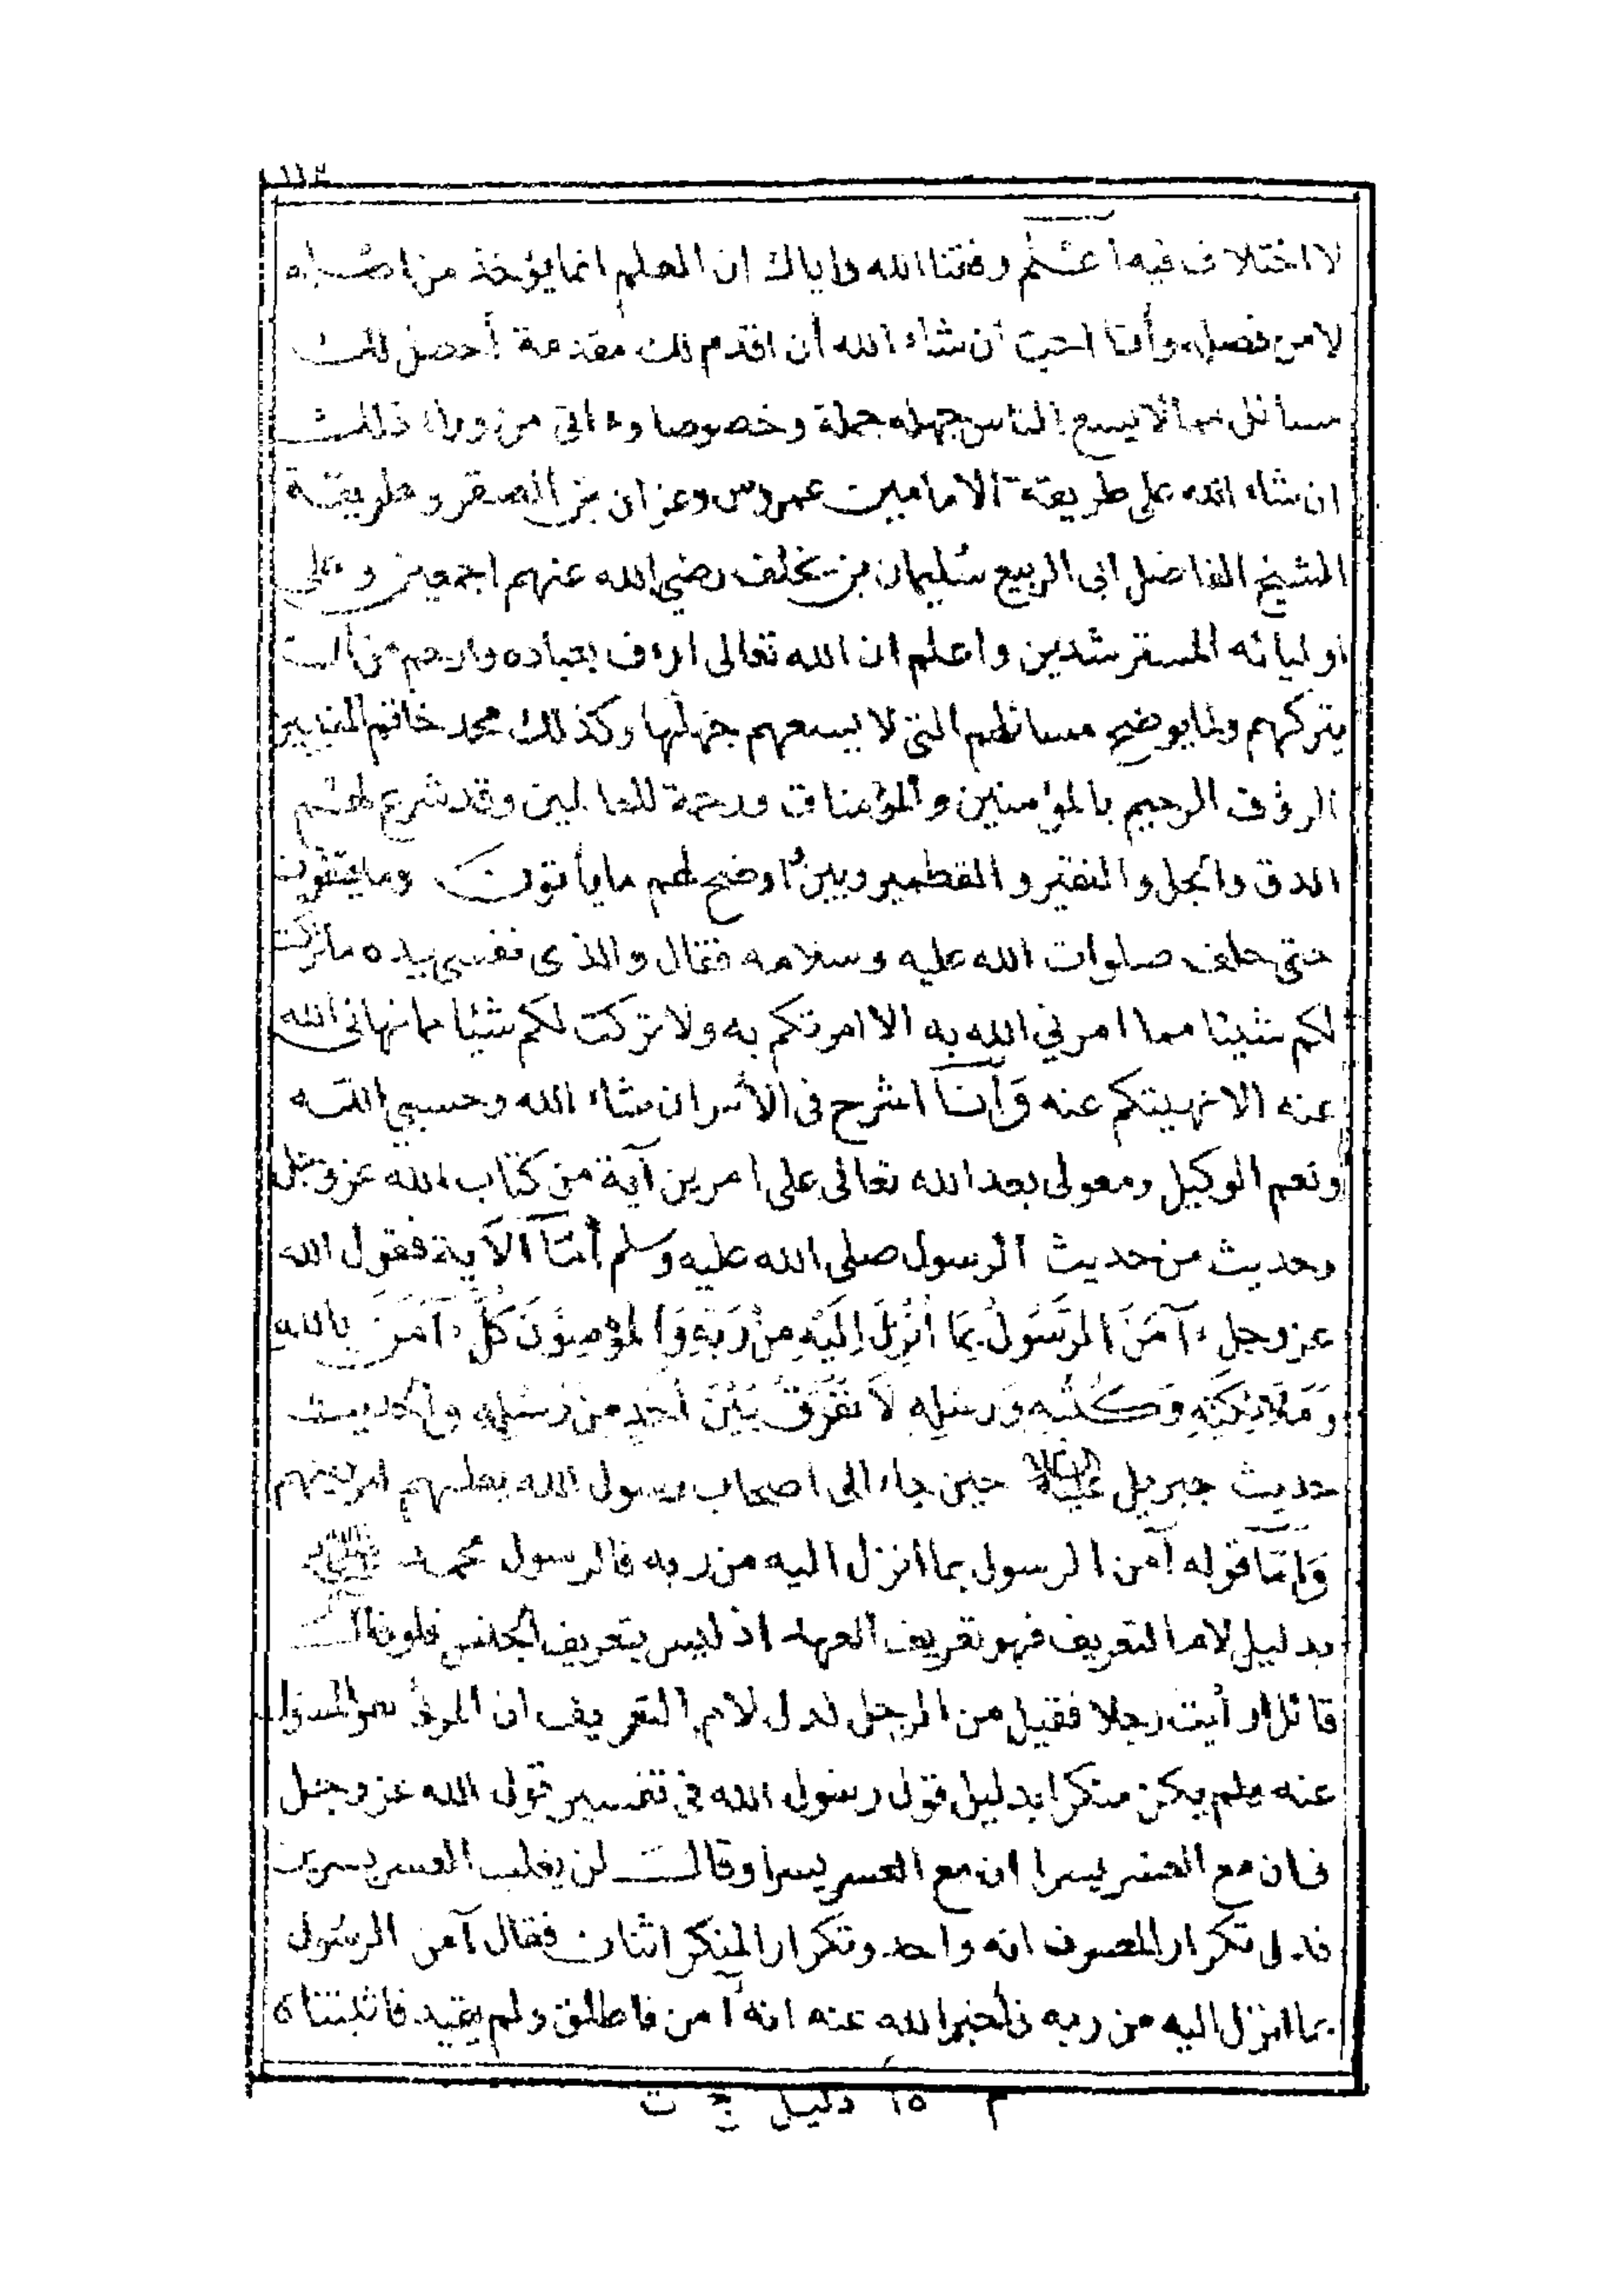 ١١٣
لا اختلاف فيه اعلم وفقنا الله واياك ان العلم انما يؤخذ من اصله
لا من فصله وأنا احب ان شاء الله أن اقدم لك مقدمة أحصل لك
مسائل مما لا يسع الناس جهله جملة وخصوصا وءاتى من وراء ذلك
ان شاء الله على طريقة الامامين عمروس وعزان بن الصقر وطريقة
الشيخ الفاضل ابى الربيع سليمان بن يخلف رضي الله عنهم اجمعين وعلى
اوليائه المسترشدين واعلم ان الله تعالى ارءف بعباده وارحم من ان
يتركهم ولما يوضح مسائلهم التى لا يسعهم جهلها وكذلك محمد خاتم النبيين
الرؤف الرحيم بالمؤمنين والمؤمنات ورحمة للعالمين وقد شرع لهم
الدق والجل والنقير والقطمير وبين وأوضح لهم ما يأتون وما يتقون
حتى حلف صلوات الله عليه وسلامه فقال والذى نفسى بيده ما تركت
لكم شيئا مما امرني الله به الا امرتكم به ولا تركت لكم شيئا مما نهانى الله
عنه الا نهيتكم عنه وَأنا اشرح فى الأمر ان شاء الله وحسبي الله
ونعم الوكيل ومعولى بعد الله تعالى على امرين آية من كتاب الله عز وجل
وحديث من حديث الرسول صلى الله عليه وسلم أمّا الآية فقول الله
عز وجل آمَنَ الرَّسُولُ بِمَا أُنْزِلَ اِلَيْهِ مِنْ رَبِّهِ وَالمؤمِنُونَ كُلٌّ آمَنَ بِالله
وَمَلَائِكَتِهِ وَكُتُبِه وَرسُلِه لاَ نُفَرِّقُ بَيْنَ أَحَدٍ مِنْ رُسُلِهِ والحديث
حديث جبريل عليه السلام حين جاء الى اصحاب رسول الله يعلمهم امر دينهم
وَامّا قوله آمن الرسول بما انزل اليه من ربه فالرسول محمد ﷺ
بدليل لام التعريف فهو تعريف العهد اذ ليس بتعريف الجنس فلو قال
قائل رأيت رجلا فقيل من الرجل لدل لام التعريف ان المرئي هو المسؤل
عنه ولم يكن منكرا بدليل قول رسول الله في تفسير قول الله عز وجل
فان مع العسر يسرا ان مع العسر يسرا وقال لن يغلب العسر يسرين
فدل تكرار المعروف انه واحد وتكرار المنكر اثنان فقال آمن الرسول
بما انزل اليه من ربه فأخبر الله عنه انه آمن فاطلق ولم يقيد فاثبتناه
م ١٥ دليل ج ت